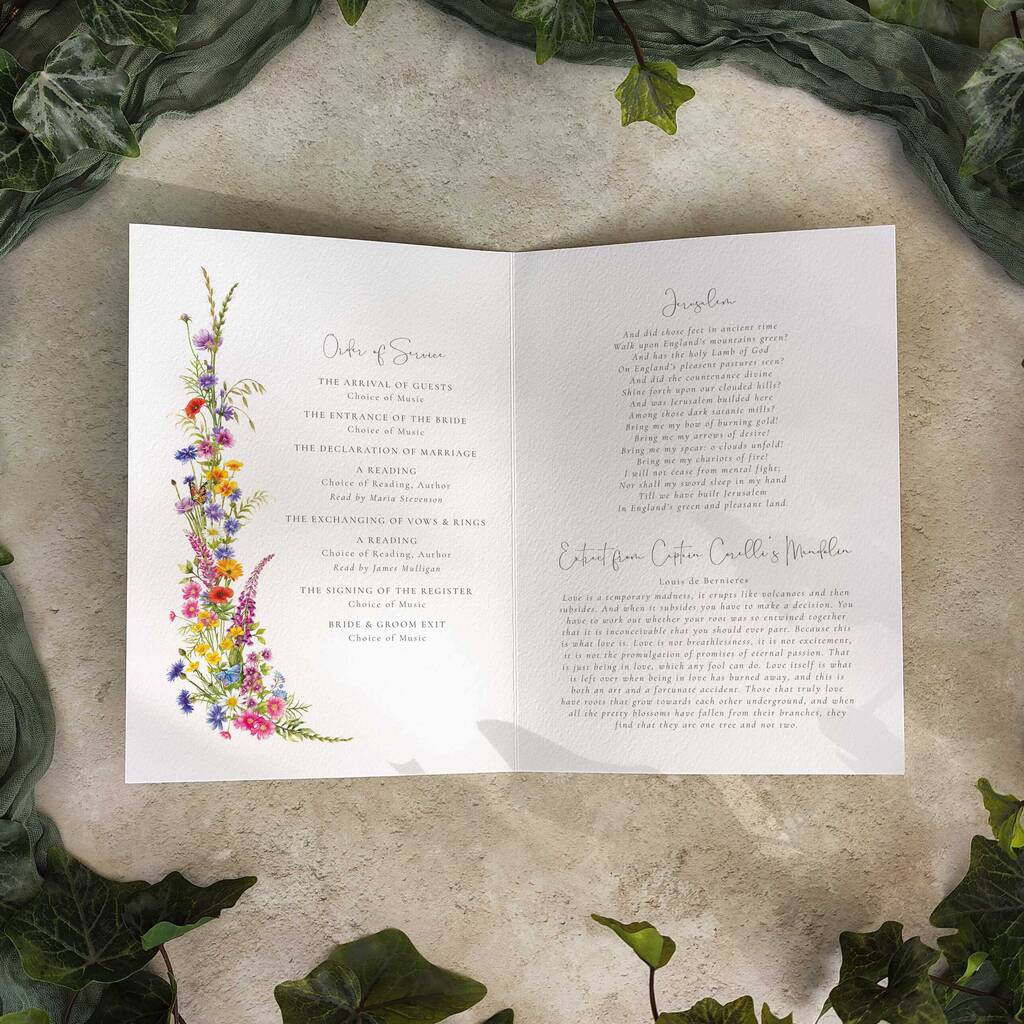 Order of Service
THE ARRIVAL OF GUESTS
Choice of Music
THE ENTRANCE OF THE BRIDE
Choice of Music
THE DECLARATION OF MARRIAGE
A READING
Choice of Reading, Author
Read by Maria Stevenson
THE EXCHANGING OF VOWS & RINGS
A READING
Choice of Reading, Author
Read by James Mulligan
THE SIGNING OF THE REGISTER
Choice of Music
BRIDE & GROOM EXIT
Choice of Music
Jerusalem
And did those feet in ancient time
Walk upon England's mountains green?
And has the holy Lamb of God
On England's pleasant pastures seen?
And did the countenance divine
Shine forth upon our clouded hills?
And was Jerusalem builded here
Among those dark satanic mills?
Bring me my bow of burning gold!
Bring me my arrows of desire!
Bring me my spear: o clouds unfold!
Bring me my chariots of fire!
I will not cease from mental fight;
Nor shall my sword sleep in my hand
Till we have built Jerusalem
In England's green and pleasant land.
Extract from Captain Corelli's Mandolin
Louis de Bernieres
Love is a temporary madness, it erupts like volcanoes and then
subsides. And when it subsides you have to make a decision. You
have to work out whether your root was so entwined together
that it is inconceivable that you should ever part. Because this
is what love is. Love is not breathlessness, it is not excitement,
it is not the promulgation of promises of eternal passion. That
is just being in love, which any fool can do. Love itself is what
is left over when being in love has burned away, and this is
both an art and a fortunate accident. Those that truly love
have roots that grow towards each other underground, and when
all the pretty blossoms have fallen from their branches, they
find that they are one tree and not two.